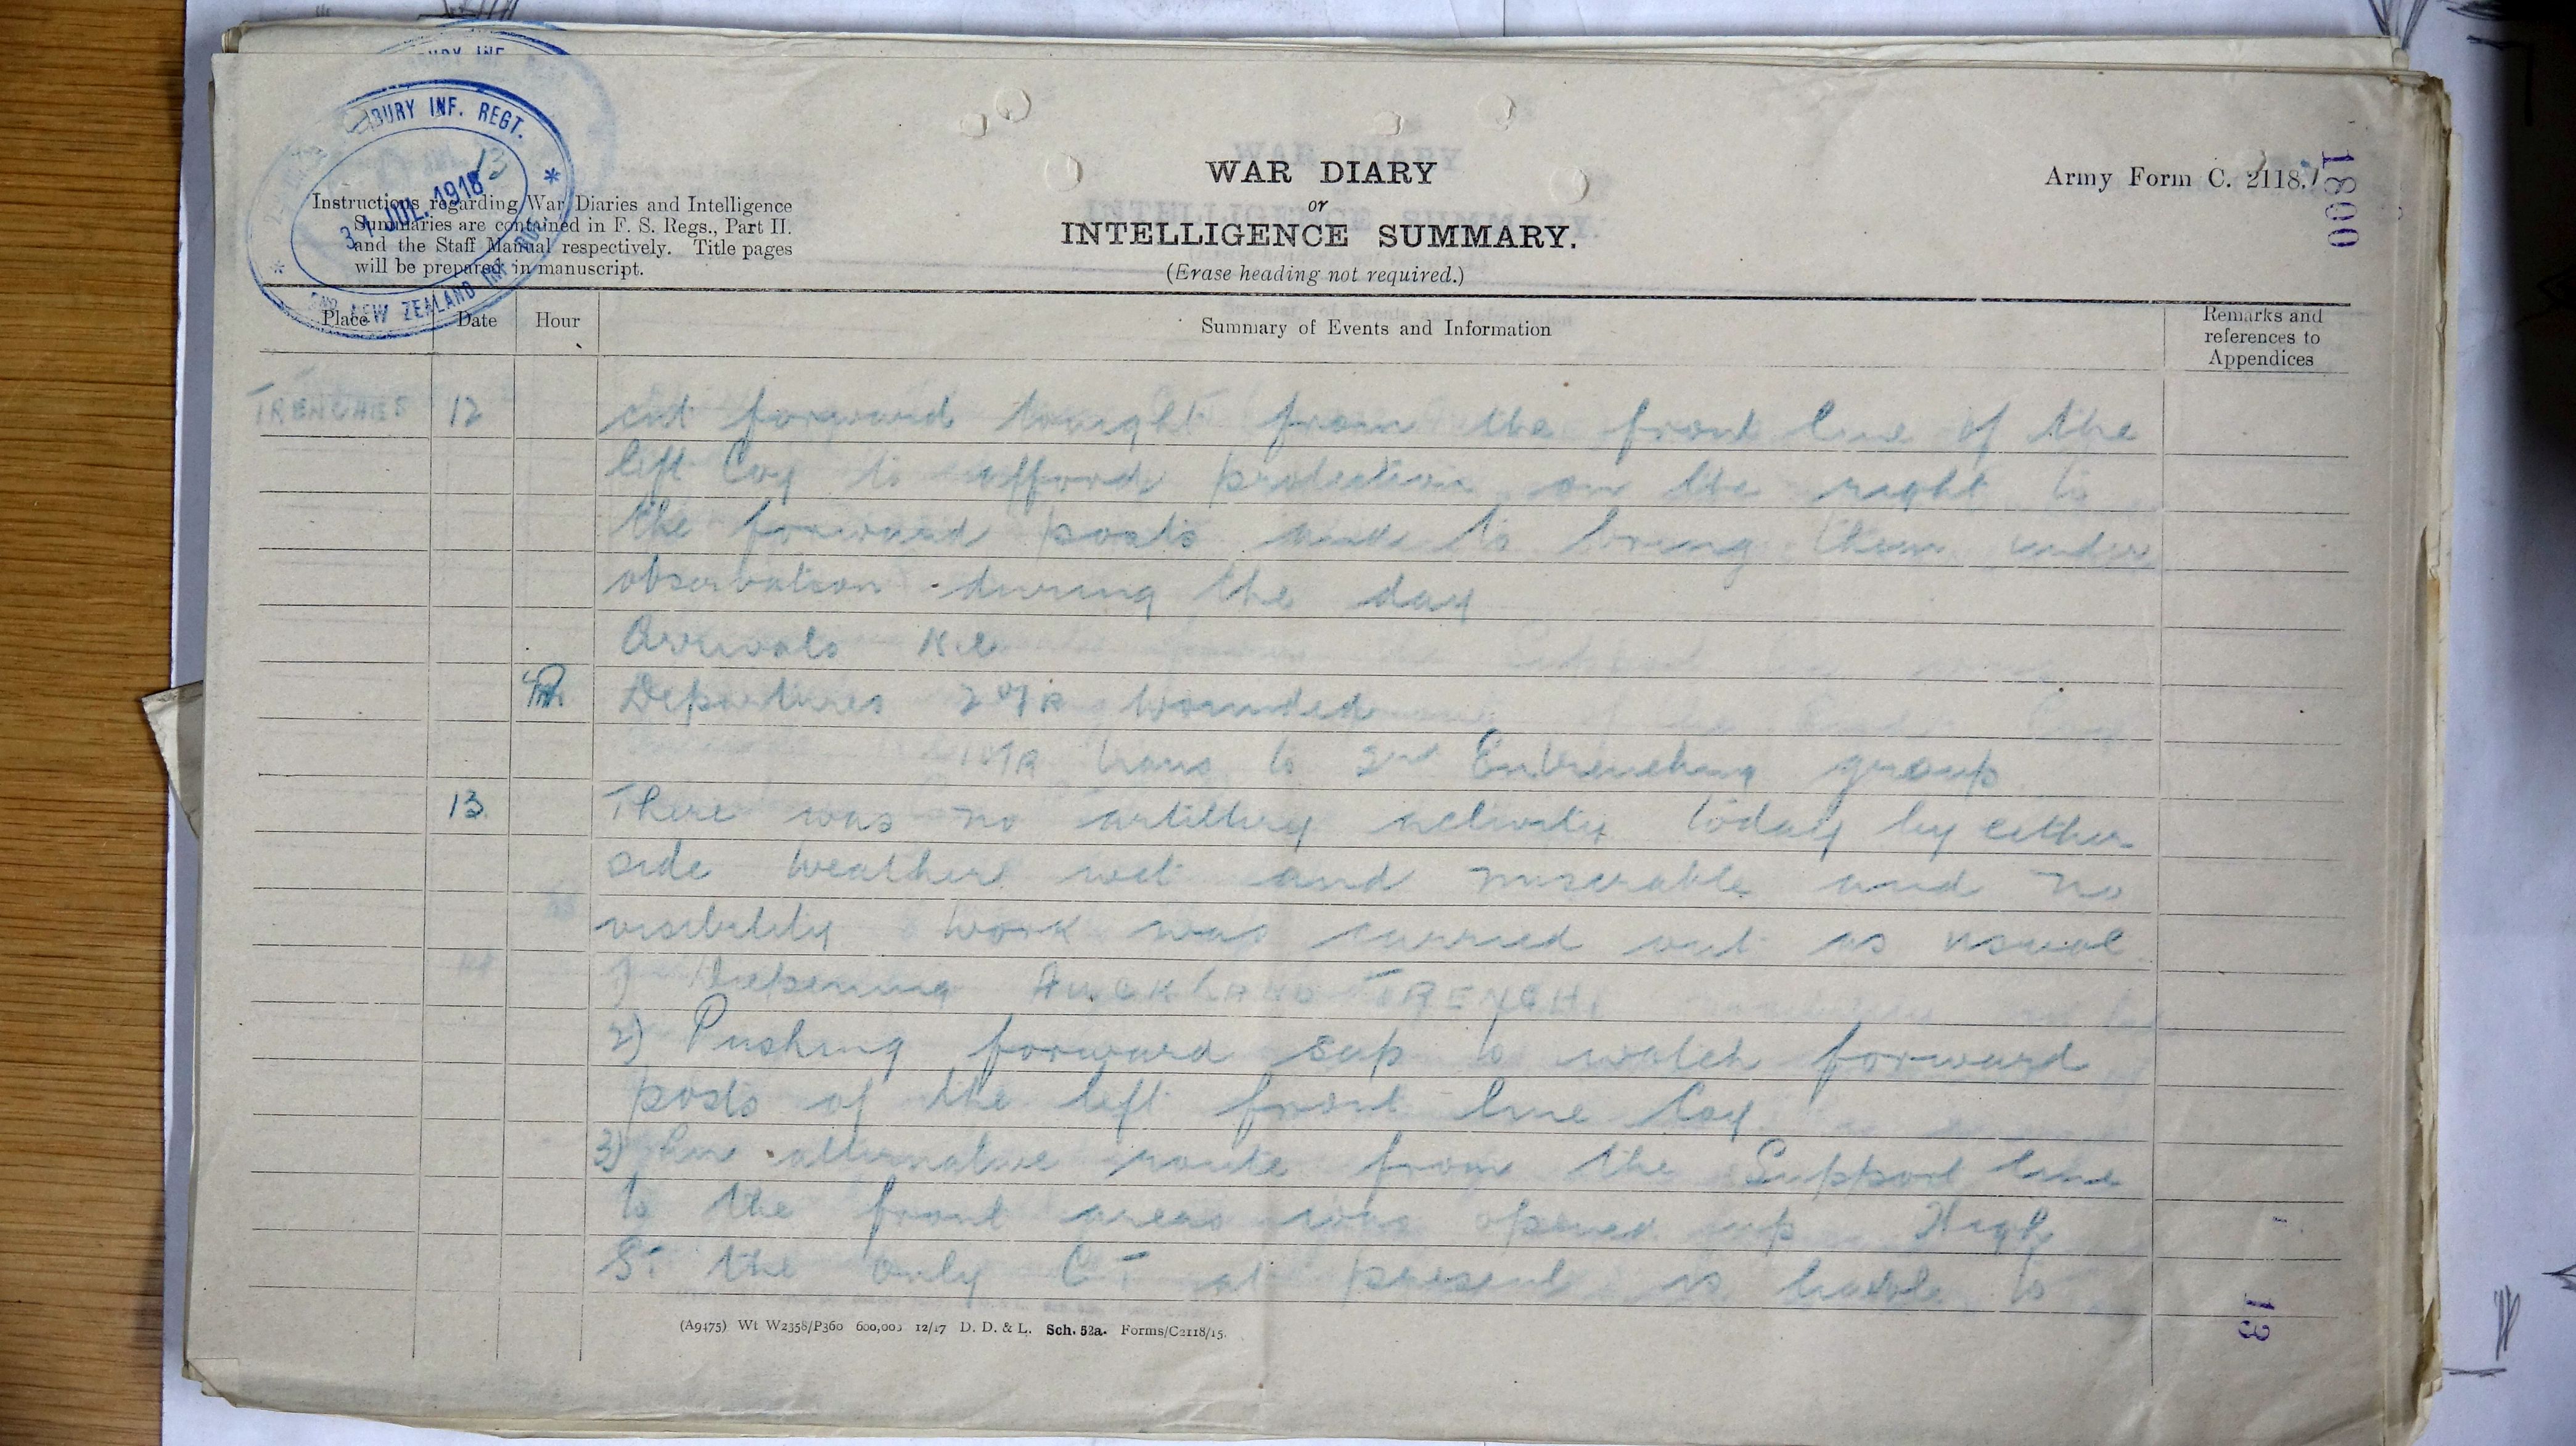 BURY INF.
BURY INF. REGT.
13
31 JUL. 1918
NEW ZEALAND INF.
Instructions regarding War Diaries and Intelligence
Summaries are contained in F. S. Regs., Part II.
and the Staff Manual respectively. Title pages
will be prepared in manuscript.
WAR DIARY
or
INTELLIGENCE SUMMARY.
(Erase heading not required.)
Army Form C. 2118.
1800
Place Date Hour Summary of Events and Information Remarks and references to Appendices
TRENCHES 12 cut forward tonight from the front line of the
left Coy to afford protection on the right to
the forward posts to bring them under
observation during the day
Arrivals Nil
Departures 2 OR wounded
1 OR trans to 2nd Entrenching group
13 There was no artillery activity today by either
side Weather wet and miserable and no
visibility Work was carried out as usual
1) Deepening AUCKLAND TRENCH.
2) Pushing forward sap to watch forward
posts of the left front line Coy
3) An alternative route from the Support line
to the front areas was opened up High
St the only CT at present is liable to
(A9475) Wt W2358/P360 600,000 12/17 D. D. & L. Sch. 52a. Forms/C2118/15.
13